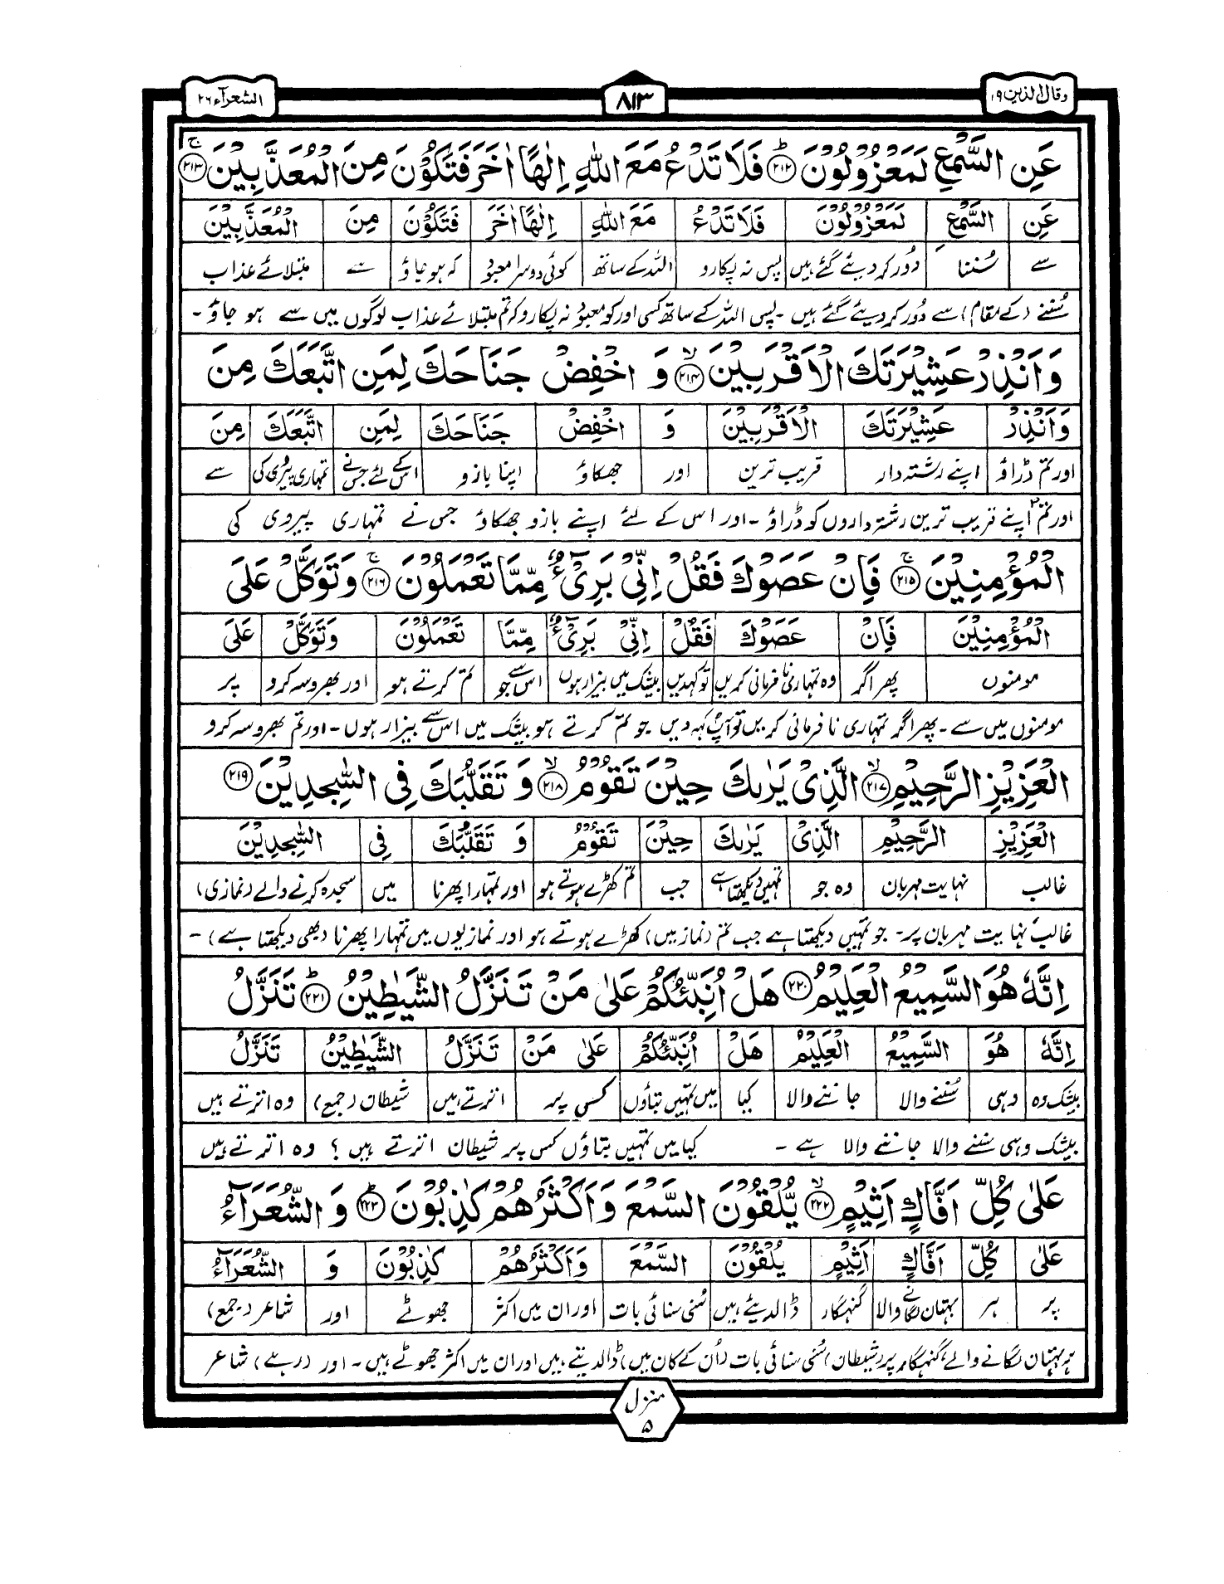 وقال الذين ۱۹
۸۱۳
الشعرآء ۲۶
عَنِ السَّمْعِ لَمَعْزُوْلُوْنَ ۲۱۲ؕ فَلَا تَدْعُ مَعَ اللّٰهِ اِلٰهًا اٰخَرَ فَتَكُوْنَ مِنَ الْمُعَذَّبِيْنَ ۲۱۳ۚ
عَنِ السَّمْعِ لَمَعْزُوْلُوْنَ فَلَا تَدْعُ مَعَ اللّٰهِ اِلٰهًا اٰخَرَ فَتَكُوْنَ مِنَ الْمُعَذَّبِيْنَ
سے سُننا دُور کر دیئے گئے ہیں پس نہ پکارو اللہ کے ساتھ کوئی دوسرا معبود کہ ہو جاؤ سے مبتلائے عذاب
سُننے (کے مقام) سے دُور کر دیئے گئے ہیں ۔ پس اللہ کے ساتھ کسی اور کو معبود نہ پکارو کہ تم مبتلائے عذاب لوگوں میں سے ہو جاؤ ۔
وَاَنْذِرْ عَشِيْرَتَكَ الْاَقْرَبِيْنَ ۲۱۴ۙ وَ اخْفِضْ جَنَاحَكَ لِمَنِ اتَّبَعَكَ مِنَ
وَاَنْذِرْ عَشِيْرَتَكَ الْاَقْرَبِيْنَ وَ اخْفِضْ جَنَاحَكَ لِمَنِ اتَّبَعَكَ مِنَ
اور تم ڈراؤ اپنے رشتہ دار قریب ترین اور جھکاؤ اپنا بازو اسکے لئے جس نے تمہاری پیروی کی سے
اور تم اپنے قریب ترین رشتہ داروں کو ڈراؤ ۔ اور اس کے لئے اپنے بازو جھکاؤ جس نے تمہاری پیروی کی
الْمُؤْمِنِيْنَ ۲۱۵ۚ فَاِنْ عَصَوْكَ فَقُلْ اِنِّيْ بَرِيْٓءٌ مِّمَّا تَعْمَلُوْنَ ۲۱۶ۚ وَتَوَكَّلْ عَلَى
الْمُؤْمِنِيْنَ فَاِنْ عَصَوْكَ فَقُلْ اِنِّيْ بَرِيْٓءٌ مِّمَّا تَعْمَلُوْنَ وَتَوَكَّلْ عَلَى
مومنوں پھر اگر وہ تمہاری نافرمانی کریں تو کہدیں بیشک میں بیزار ہوں اس سے جو تم کرتے ہو اور بھروسہ کرو پر
مومنوں میں سے ۔ پھر اگر تمہاری نافرمانی کریں تو آپؐ کہہ دیں جو تم کرتے ہو بیشک میں اس سے بیزار ہوں ۔ اور تم بھروسہ کرو
الْعَزِيْزِ الرَّحِيْمِ ۲۱۷ۙ الَّذِيْ يَرٰىكَ حِيْنَ تَقُوْمُ ۲۱۸ۙ وَ تَقَلُّبَكَ فِي السّٰجِدِيْنَ ۲۱۹
الْعَزِيْزِ الرَّحِيْمِ الَّذِيْ يَرٰىكَ حِيْنَ تَقُوْمُ وَ تَقَلُّبَكَ فِي السّٰجِدِيْنَ
غالب نہایت مہربان وہ جو تمہیں دیکھتا ہے جب تم کھڑے ہوتے ہو اور تمہارا پھرنا میں سجدہ کرنے والے (نمازی)
غالب نہایت مہربان پر ۔ جو تمہیں دیکھتا ہے جب تم (نماز میں) کھڑے ہوتے ہو اور نمازیوں میں تمہارا پھرنا (بھی دیکھتا ہے) ۔
اِنَّهٗ هُوَ السَّمِيْعُ الْعَلِيْمُ ۲۲۰ هَلْ اُنَبِّئُكُمْ عَلٰى مَنْ تَنَزَّلُ الشَّيٰطِيْنُ ۲۲۱ؕ تَنَزَّلُ
اِنَّهٗ هُوَ السَّمِيْعُ الْعَلِيْمُ هَلْ اُنَبِّئُكُمْ عَلٰى مَنْ تَنَزَّلُ الشَّيٰطِيْنُ تَنَزَّلُ
بیشک وہ وہی سُننے والا جاننے والا کیا میں تمہیں بتاؤں کسی پر اترتے ہیں شیطان (جمع) وہ اترتے ہیں
بیشک وہی سننے والا جاننے والا ہے ۔ کیا میں تمہیں بتاؤں کس پر شیطان اترتے ہیں ؟ وہ اترتے ہیں
عَلٰى كُلِّ اَفَّاكٍ اَثِيْمٍ ۲۲۲ۙ يُّلْقُوْنَ السَّمْعَ وَاَكْثَرُهُمْ كٰذِبُوْنَ ۲۲۳ؕ وَ الشُّعَرَآءُ
عَلٰى كُلِّ اَفَّاكٍ اَثِيْمٍ يُلْقُوْنَ السَّمْعَ وَاَكْثَرُهُمْ كٰذِبُوْنَ وَ الشُّعَرَآءُ
پر ہر بہتان لگانے والا گنہگار ڈالدیتے ہیں سُنی سنائی بات اور ان میں اکثر جھوٹے اور شاعر (جمع)
ہر بہتان لگانے والے گنہگار پر (شیطان) سُنی سنائی بات (اُن کے کان میں) ڈالدیتے ہیں اور ان میں اکثر جھوٹے ہیں ۔ اور (رہے) شاعر
منزل
۵